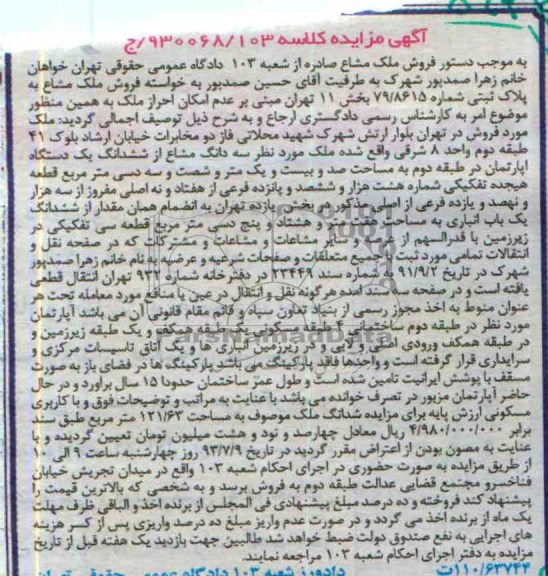 آگهی مزایده کلاسه ۹۳۰۰۶۸/۱۰۳/ج
به موجب دستور فروش ملک مشاع صادره از شعبه ۱۰۳ دادگاه عمومی حقوقی تهران خواهان
خانم زهرا صمدپور شهرک به طرفیت آقای حسین صمدپور به خواسته فروش ملک مشاع به
پلاک ثبتی شماره ۷۹/۸۶۱۵ بخش ۱۱ تهران مبنی بر عدم امکان احراز ملک به همین منظور
موضوع امر به کارشناس رسمی دادگستری ارجاع و به شرح ذیل توصیف اجمالی گردید: ملک
مورد فروش در تهران بلوار ارتش شهرک شهید محلاتی فاز دو مخابرات خیابان ارشاد بلوک ۴۱
طبقه دوم واحد ۸ شرقی واقع شده ملک مورد نظر سه دانگ مشاع از ششدانگ یک دستگاه
آپارتمان در طبقه دوم به مساحت صد و بیست و یک متر و شصت و سه دسی متر مربع قطعه
هیجده تفکیکی شماره هشت هزار و ششصد و پانزده فرعی از هفتاد و نه اصلی مفروز از سه هزار
و نهصد و یازده فرعی از اصلی مذکور در بخش یازده تهران به انضمام همان مقدار از ششدانگ
یک باب انباری به مساحت هفت متر و هشتاد و پنج دسی متر مربع قطعه سی تفکیکی در
زیرزمین با قدرالسهم از عرصه و سایر مشاعات و مشاعات و مشترکات که در صفحه نقل و
انتقالات تمامی مورد ثبت با جمیع متعلقات و صفحات شرعیه و عرضیه به نام خانم زهرا صمدپور
شهرک در تاریخ ۹۱/۹/۲ به شماره سند ۲۳۴۴۹ در دفترخانه شماره ۹۳۲ تهران انتقال قطعی
یافته است و در صفحه سه سند آمده هرگونه نقل و انتقال در عین یا منافع مورد معامله تحت هر
عنوان منوط به اخذ مجوز رسمی از بنیاد تعاون سپاه و قائم مقام قانونی آن می باشد آپارتمان
مورد نظر در طبقه دوم ساختمانی ۴ طبقه مسکونی یک طبقه همکف و یک طبقه زیرزمین و
در طبقه همکف ورودی اصلی و لابی و در زیرزمین انباری ها و یک اتاق تاسیسات مرکزی و
سرایداری قرار گرفته است و واحدها فاقد پارکینگ می باشد پارکینگ ها در فضای باز به صورت
مسقف با پوشش ایرانیت تامین شده است و طول عمر ساختمان حدودا ۱۵ سال برآورد و در حال
حاضر آپارتمان مزبور در تصرف خوانده می باشد با عنایت به مراتب و توضیحات فوق و با کاربری
مسکونی ارزش پایه برای مزایده شدانگ ملک موصوف به مساحت ۱۲۱/۶۳ متر مربع طبق سند
برابر ۴/۹۸۰/۰۰۰/۰۰۰ ریال معادل چهارصد و نود و هشت میلیون تومان تعیین گردیده و با
عنایت به مصون بودن از اعتراض مقرر گردید در تاریخ ۹۳/۷/۹ روز چهارشنبه ساعت ۹ الی ۱۰
از طریق مزایده به صورت حضوری در اجرای احکام شعبه ۱۰۳ واقع در میدان تجریش خیابان
فناخسرو مجتمع قضایی عدالت طبقه دوم به فروش برسد و به شخصی که بالاترین قیمت را
پیشنهاد کند فروخته و ده درصد مبلغ پیشنهادی فی المجلس از برنده اخذ و الباقی ظرف مهلت
یک ماه از برنده اخذ می گردد و در صورت عدم واریز مبلغ ده درصد واریزی پس از کسر هزینه
های اجرایی به نفع صندوق دولت ضبط خواهد شد طالبین جهت بازدید یک هفته قبل از تاریخ
مزایده به دفتر اجرای احکام شعبه ۱۰۳ مراجعه نمایند.
۱۱۰/۶۳۷۴۴ت دادورز شعبه ۱۰۳ دادگاه عمومی حقوقی تهران